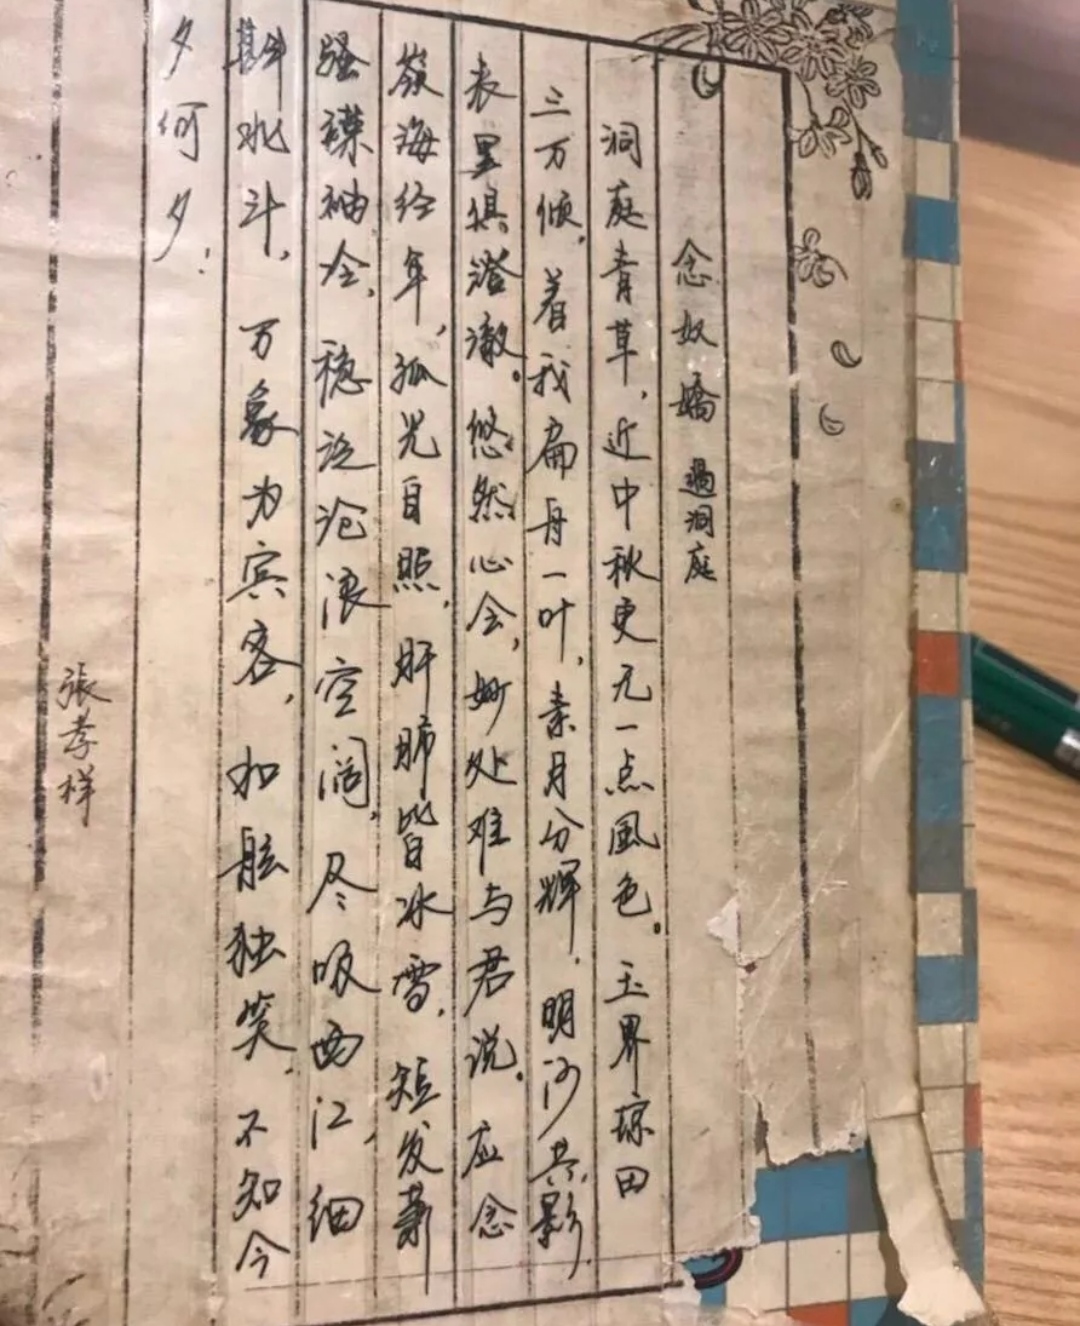 念奴嬌 過洞庭
洞庭青草，近中秋更无一点風色。玉界琼田
三万倾，着我扁舟一叶，素月分辉，明河共影，
表里俱澄澈。悠然心会，妙处难与君说。应念
岭海经年，孤光自照，肝肺皆冰雪，短发萧
骚襟袖冷，稳泛沧浪空阔，尽吸西江，细
斟北斗，万象为宾客，扣舷独笑，不知今
夕何夕！
張孝祥